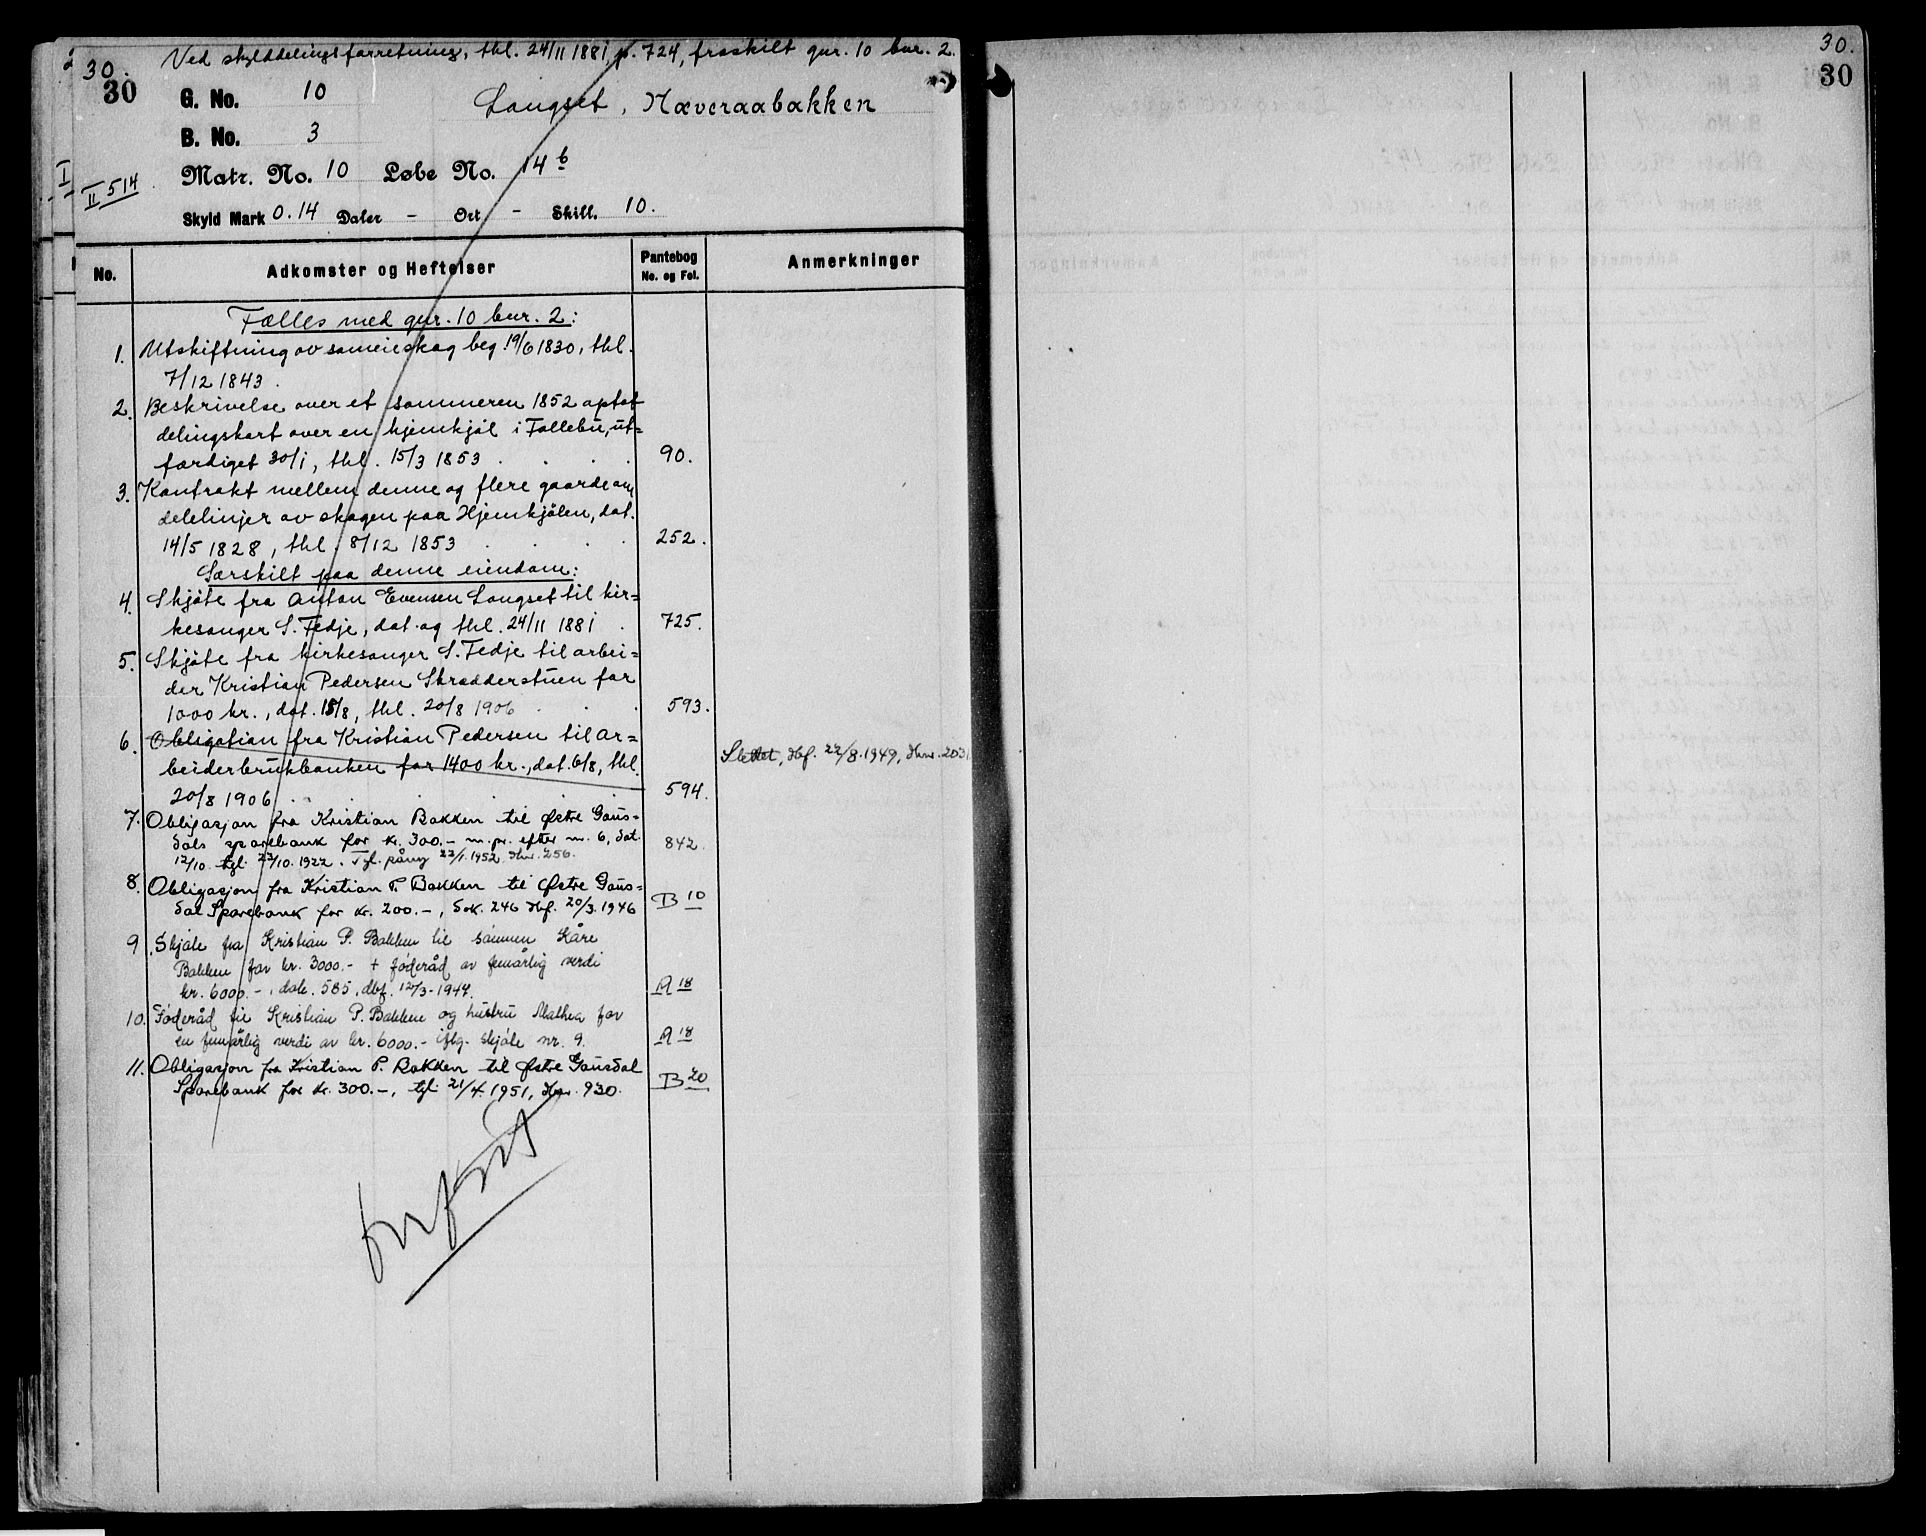 Ved skylddelingsforretning, thl. 24/11 1881, p. 724, fraskilt gnr. 10 bnr. 2.
30.
30
G. No. 10
Langset, Næveraabakken
B. No. 3
Matr. No. 10 Løbe No. 14 b
I
II 514
Skyld Mark 0.14 Daler - Ort - Skill. 10.
No.
Adkomster og Heftelser
Pantebog
No. og Fol.
Anmerkninger
Fælles med gnr. 10 bnr. 2:
1. Utskiftning av sameieskog beg. 19/6 1830, thl.
7/12 1843.
2. Beskrivelse over et sommeren 1852 optat
delingskart over en hjemkjøl i Follebu, ut=
færdiget 30/1, thl. 15/3 1853 . . . 90.
3. Kontrakt mellem denne og flere gaarde om
delelinjer av skogen paa Hjemkjølen, dat.
14/5 1828, thl. 8/12 1853 . . . 252.
Særskilt paa denne eiendom:
4. Skjøte fra Anton Evensen Langset til kir=
kesanger S. Fedje, dat. og thl. 24/11 1881 . 725.
5. Skjøte fra kirkesanger S. Fedje til arbei=
der Kristian Pedersen Skrædderstuen for
1000 kr., dat. 18/8, thl. 20/8 1906 . . . 593.
6. Obligation fra Kristian Pedersen til ar=
beiderbrukbanken for 1400 kr., dat. 6/8, thl.
Slettet, dbf. 22/8.1949, dknr. 2031
20/8 1906 . . . 594.
7. Obligasjon fra Kristian Bakken til Østre Gaus=
dals sparebank for kr. 300.- m. pr. efter nr. 6, dat.
842.
12/10. tgl. 23/10.1922. Tgl. påny 22/1.1952. dknr. 256.
8. Obligasjon fra Kristian P. Bakken til Østre Gaus=
dal Sparebank for kr. 200.-, dok. 246 dbf. 20/3.1946
B 10
9. Skjøte fra Kristian P. Bakken til sønnen Kåre
Bakken for kr. 3000.- + føderåd av femårlig verdi
kr. 6000.-, dok. 585, dbf. 12/3-1944.
A 18
10. Føderåd til Kristian P. Bakken og hustru Mathea for
en femårlig verdi av kr. 6000.- iflg. skjøte nr. 9.
A 18
11. Obligasjon fra Kristian P. Bakken til Østre Gausdal
Sparebank for kr. 300.-, tgl. 21/4.1951, dknr. 930.
B 20
30.
30